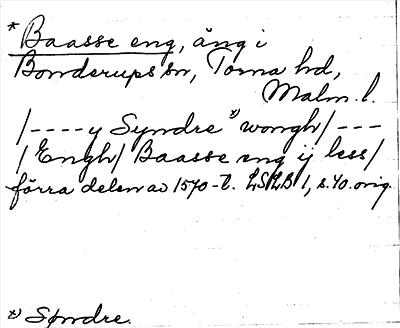 * Baasse eng, äng i
Bonderups sn, Torna hd,
Malm. l.
/ - - - - y Syndre *) wongh / - - -
/ Engh / Baasse eng ij less /
förra delen av 1570-t. LSLB 1, s. 40. orig.
*) Søndre.